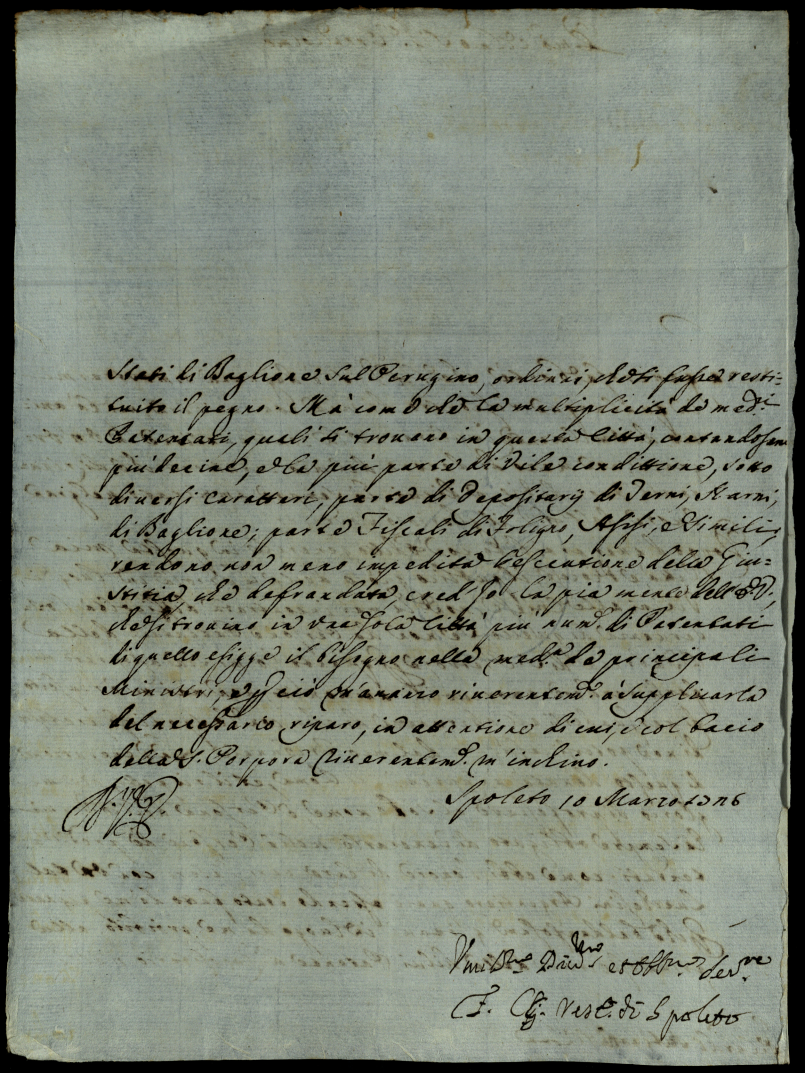 Stati di Baglione sul Perugino, ordinai, che ti fusse resti-
tuito il pegno. Mà come che la multiplicità de med.i
Patentati, quali si trovano in questa Città, contandosene
più decine, e la più parte di vile condittione, sotto
diversi caratteri, parte di Depositarij di Terni, Narni,
di Baglione; parte Fiscali di Foligno, Asisi, e simili,
rendono non meno impedita l'esecutione della Giu-
stitia, che defraudata cred'Io la pia mente dell'E.V.,
che si trovino in una sola Città più num.o di Patentati
di quello esigge il bisogno nella med.a de principali
Ministri, perciò m'avanzo riverentem.e à supplicarla
del necessario riparo, in attentione di cui, e col bacio
della S. Porpora riverentem.e m'inchino.
Spoleto 10 Marzo
Umil.mo Div.mo et Obb.mo Ser.re
F. Vesc. di Spoleto